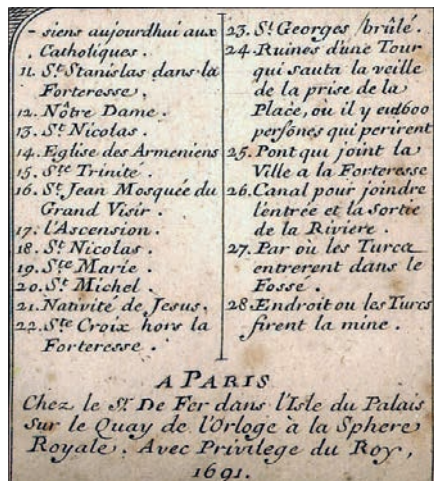 - siens aujourdhui aux
Catholiques.
11. St. Stanislas dans la
Forteresse.
12. Nôtre Dame.
13. St. Nicolas.
14. Eglise des Armeniens
15. Ste Trinite.
16. St. Jean Mosquée du
Grand Visir.
17. l'Ascension.
18. St. Nicolas.
19. Ste Marie.
20. St. Michel.
21. Nativité de Jesus.
22. Ste Croix hors la
Forteresse.
23. St. Georges brûlé.
24. Ruines d'une Tour
qui sauta la veille
de la prise de la
Place, ou il y eut 600
persónes qui perirent
25. Pont qui joint la
Ville a la Forteresse
26. Canal pour joindre
l'entrée et la sortie
de la Riviere.
27. Par où les Turcs
entrerent dans le
Fossé.
28. Endroit ou les Turcs
firent la mine.
A PARIS
Chez le Sr. De Fer dans l'Isle du Palais
sur le Quay de l'Orloge à la Sphere
Royale. Avec Privilege du Roy,
1691.